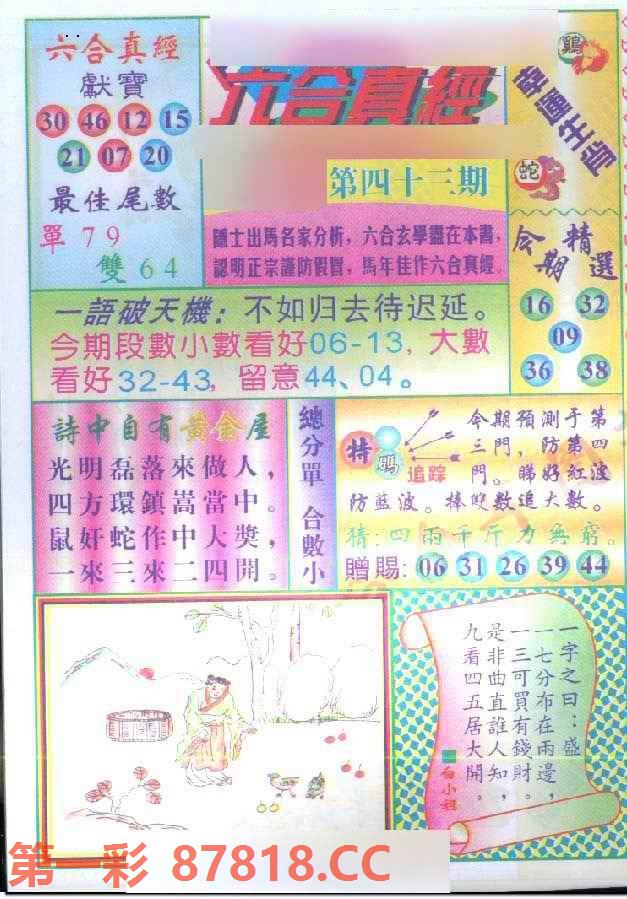 六合真經
獻寶
30 46 12 15
21 07 20
最佳尾數
單79
雙64
六合真經
第四十三期
隱士出馬名家分析，六合玄學盡在本書，
認明正宗謹防假冒，馬年佳作六合真經
鷄
蛇
今期精選
16 32
09
36 38
一語破天機：不如归去待迟延。
今期段數小數看好06-13，大數
看好32-43，留意44、04。
詩中自有黃金屋
光明磊落來做人，
四方環鎮嵩當中。
鼠奸蛇作中大獎，
一來三來二四開。
總分單 合數小
特碼
追踪
今期預測于第
三門，防第四
門。睇好紅波
防藍波。捧雙數追大數。
猜：四兩千斤力無窮。
贈賜：06 31 26 39 44
一字之曰：盛
一七分布在兩邊，
一三可買有錢財。
是非曲直誰人知，
九看四五居大開。
白小姐
第一彩 87818.CC